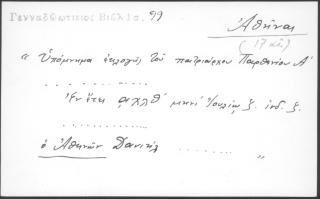 Γενναδ[ί]ωτικος Βιβλιο. 99
Ἀθῆναι
(17 αἰ)
“ Ὑπόμνημα ἐκλογῆς τοῦ πατριάρχου Παρθενίου Α΄
. . . . . . . . . .
Ἐν ἔτει αχλθ΄ μηνὶ Ἰουλίῳ ξ. ἰνδ. ξ.
. . . . . . . . . .
ὁ Ἀθηνῶν Δανιὴλ . . . . . . . . ”